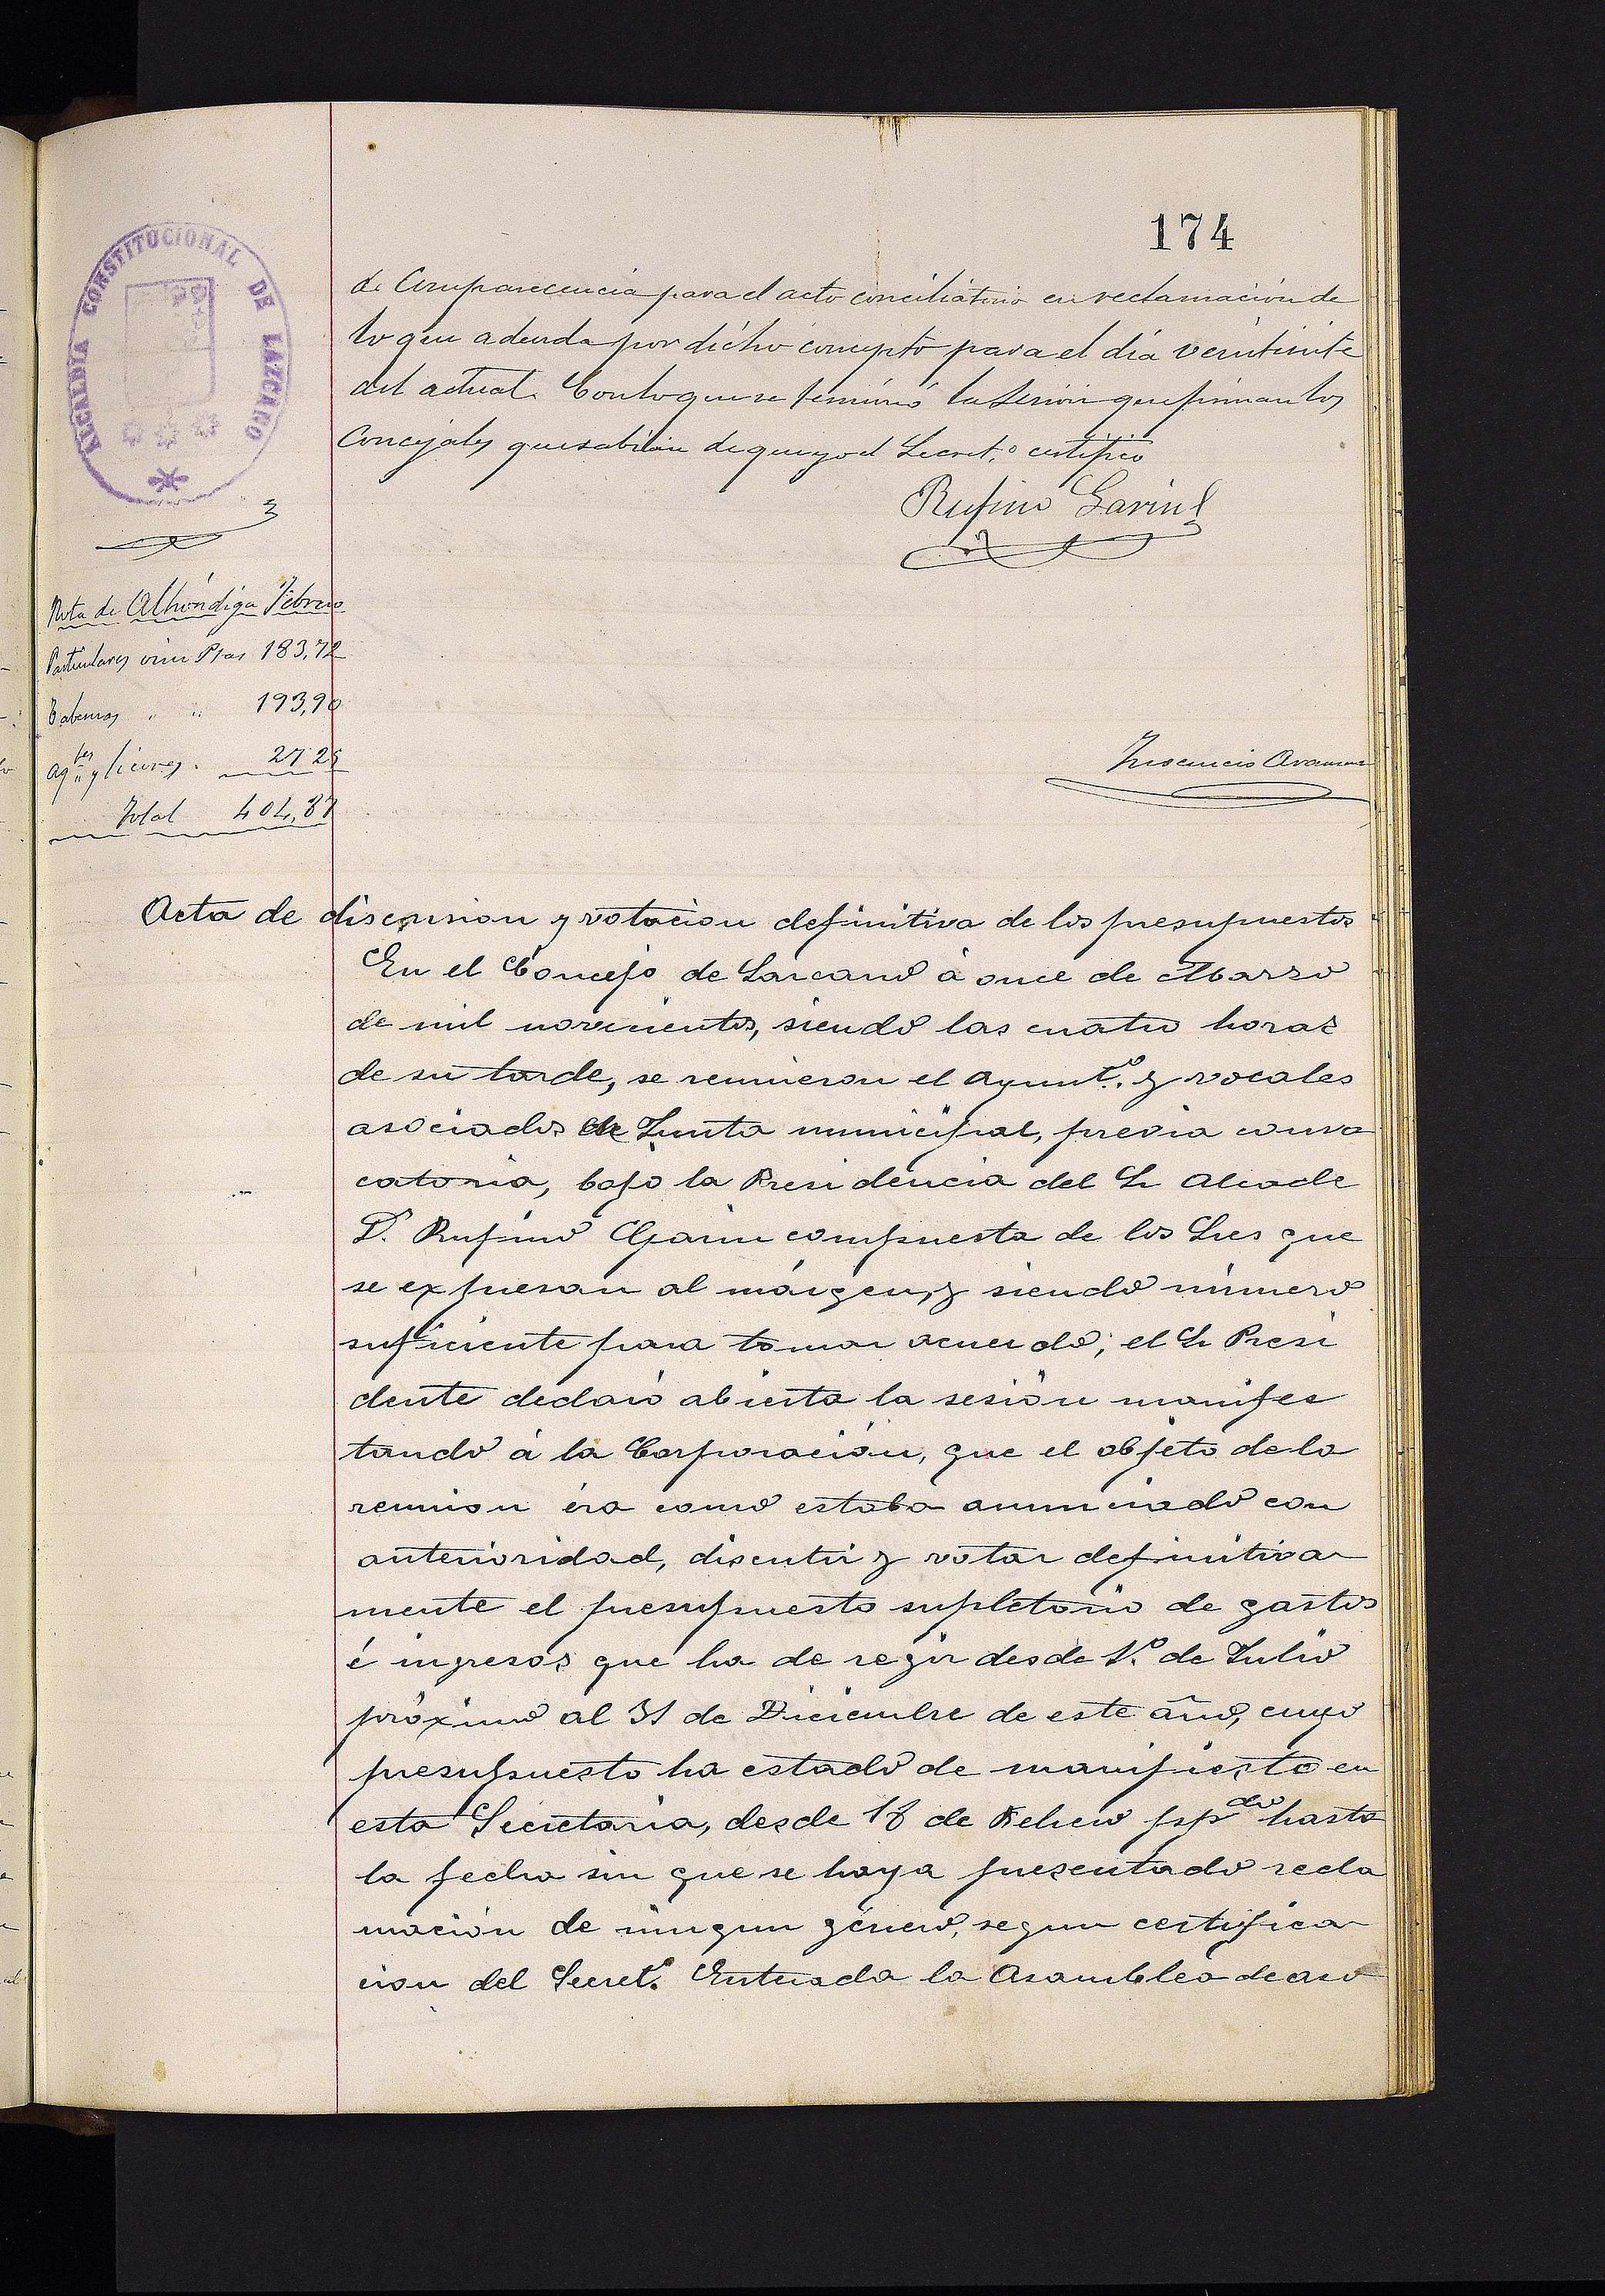 174
ALCALDÍA CONSTITUCIONAL DE LAZCANO
de Comparecencia para el acto conciliatorio en reclamación de
lo que adeuda por dicho concepto para el día veintisiete
del actual. Con lo que se terminó la Sesión que firman los
Concejales que sabían de que yo el Secret.º certifico
Rufino Garin
Nota de Alhóndiga Febrero
Particulares vino Ptas 183,72
Tabernas " " 193,90
ag.tes y licores. 27 25
Total 404,87
Inocencio
Acta de discusion y votacion definitiva de los presupuestos
En el Concejo de Lazcano á once de Marzo
de mil novecientos, siendo las cuatro horas
de su tarde, se reunieron el Ayunt.º y vocales
asociados de Junta municipal, previa convo
catoria, bajo la Presidencia del Sr Alcade
D. Rufino Garin compuesta de los Sres que
se expresan al márgen, y siendo número
suficiente para tomar acuerdo; el Sr Presi
dente declaró abierta la sesión manifes
tando á la Corporación, que el objeto de la
reunion éra como estaba anunciado con
anterioridad, discutir y votar definitiva
mente el presupuesto supletorio de gastos
é ingresos que ha de regir desde 1.º de Julio
próximo al 31 de Diciembre de este año, cuyo
presupuesto ha estado de manifiesto en
esta Secretaria, desde 18 de Febrero ppdo hasta
la fecha sin que se haya presentado recla
mación de ningun género, segun certifica
cion del Secret.º Enterada la Asamblea de aso